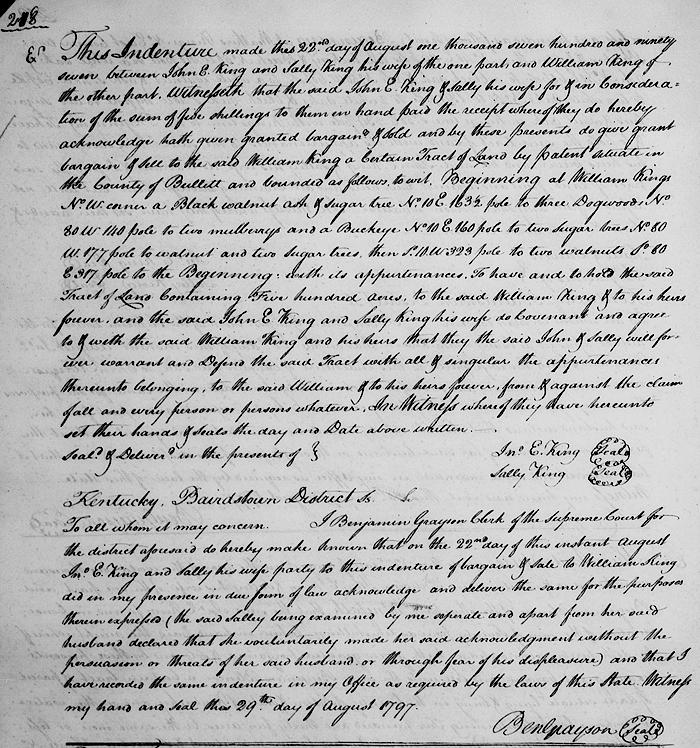 248
Ex. This Indenture made this 22nd day of August one thousand seven hundred and ninety
seven between John E. King and Sally King his wife of the one part, and William King of
the other part. Witnesseth that the said John E. King & Sally his wife for & in Considera-
tion of the sum of five shillings to them in hand paid the receipt whereof they do hereby
acknowledge hath given granted bargaind & Sold and by these presents do give grant
bargain & Sell to the said William King a Certain Tract of Land by patent situate in
the County of Bullett and bounded as follows, to wit, Beginning at William Kings
No. W. corner a Black walnut ash & Sugar tree No. 10 E 163½ pole to three Dogwoods, No.
80 W 140 pole to two mulberrys and a Buckeye No. 10 E 160 pole to two Sugar trees No. 80
W. 177 pole to walnut and two Sugar trees, then So. 10 W 323 pole to two walnuts So. 80
E 317 pole to the Beginning. with its appurtenances, To have and to hold the said
Tract of Land Containing Five hundred Acres, to the said William King & to his heirs
forever, and the said John E King and Sally King his wife do Covenant and agree
to & with the said William King and his heirs that they the said John & Sally will for-
ever warrant and Defend the said Tract with all & singular the appurtenances
thereunto belonging, to the said William & to his heirs forever, from & against the claim
of all and every person or persons whatever, In Witness whereof they have hereunto
set their hands & Seals the day and Date above written.—
Seald & Deliverd in the presents of } Jno. E. King Seal
Sally King Seal
Kentucky, Bairdstown District Sc.
To all whom it may concern. I Benjamin Grayson Clerk of the Supreme Court for
the district aforesaid do hereby make known that on the 22nd day of this instant August
Jno. E. King and Sally his wife party to this indenture of bargain & Sale to William King
did in my presence in due form of law acknowledge and deliver the same for the purposes
therein expressed (the said Sally being examined by me seperate and apart from her said
husband declared that she vouluntarily made her said acknowledgment without the
persuasion or threats of her said husband or through fear of his displeasure) and that I
have recorded the same indenture in my Office as required by the laws of this State. Witness
my hand and Seal this 29th day of August 1797.
Ben Grayson Seal